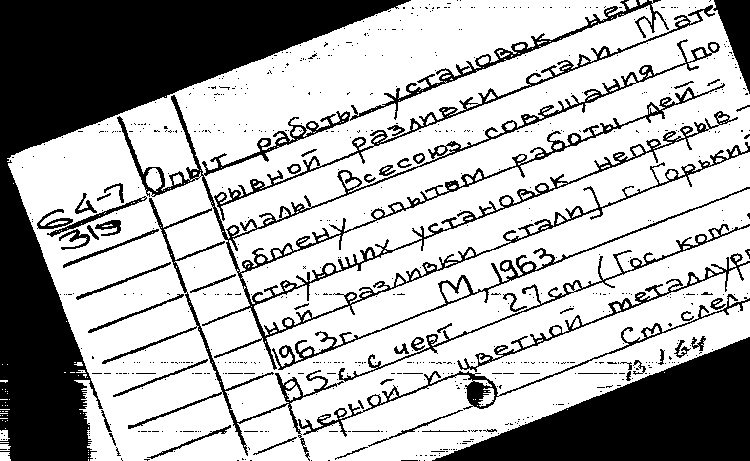 64-7
319
Опыт работы установок неп
рывной разливки стали. Мате
риалы Всесоюз. совещания [по
обмену опытом работы дей-
ствующих установок непрерыв-
ной разливки стали]. г. Горький
1963г. М., 1963.
95 с. с черт. 27 см. (Гос. ком.
черной и цветной металлург
См. след.
13 1.64